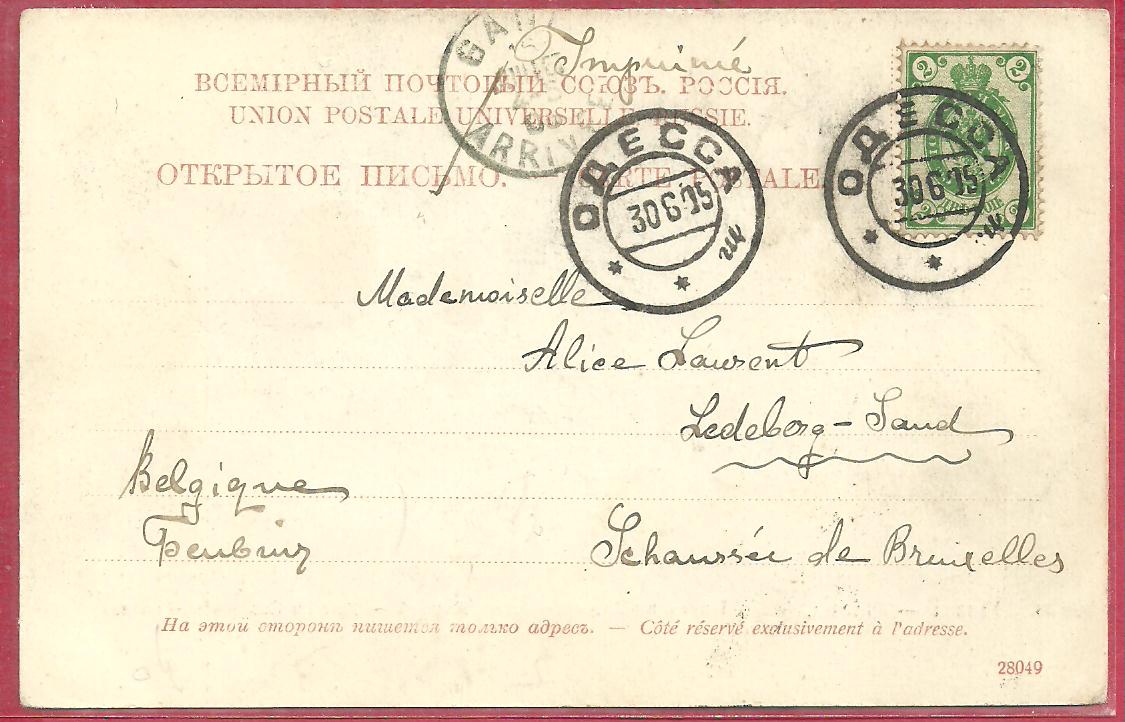 Imprimé
ВСЕМІРНЫЙ ПОЧТОВЫЙ СОЮЗЪ. РОССІЯ.
UNION POSTALE UNIVERSELLE RUSSIE.
ОТКРЫТОЕ ПИСЬМО. CARTE POSTALE.
GAN
ARRIV
ОДЕССА
30 6 05
ОДЕССА
30 6 05
2 2
Mademoiselle
Alice Laurent
Ledeberg-Gand
Belgique
Schaussée de Bruxelles
На этой сторонѣ пишется только адресъ. — Côté réservé exclusivement à l'adresse.
28049